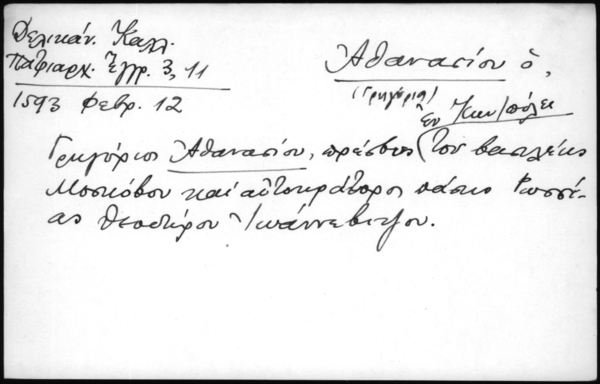 Δελικάν. Καλλ.
Πατριαρχ. Ἔγγρ. 3, 11
1593 Φεβρ. 12
Ἀθανασίου ὁ,
(Γρηγόριος)
ἐν Κων/πόλει
Γρηγόριος Ἀθανασίου, πρέσβυς τοῦ βασιλέως
Μοσκόβου καὶ αὐτοκράτορος πάσης Ῥωσσί-
ας Θεοδώρου Ἰωάννεβιτζου.